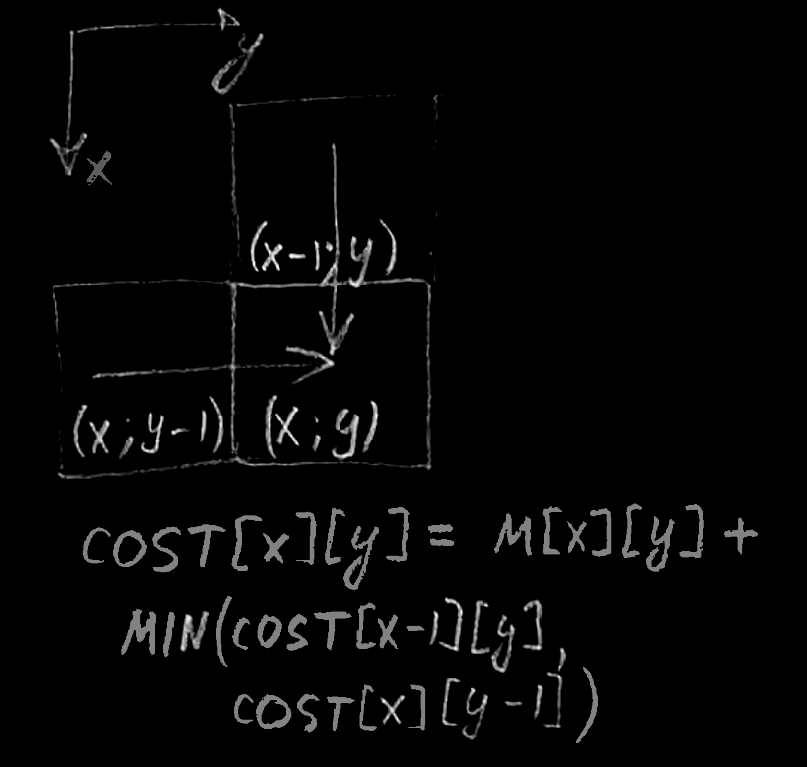 y
x
(x-1;y)
(x;y-1) (x;y)
COST[x][y] = M[x][y] +
MIN(COST[x-1][y],
COST[x][y-1])